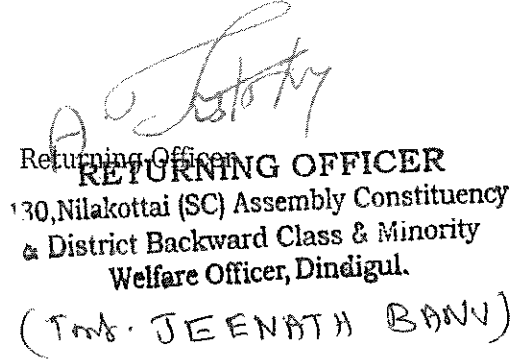 Returning Officer
RETURNING OFFICER
130,Nilakottai (SC) Assembly Constituency
& District Backward Class & Minority
Welfare Officer, Dindigul.
(Tmt. JEENATH BANU)